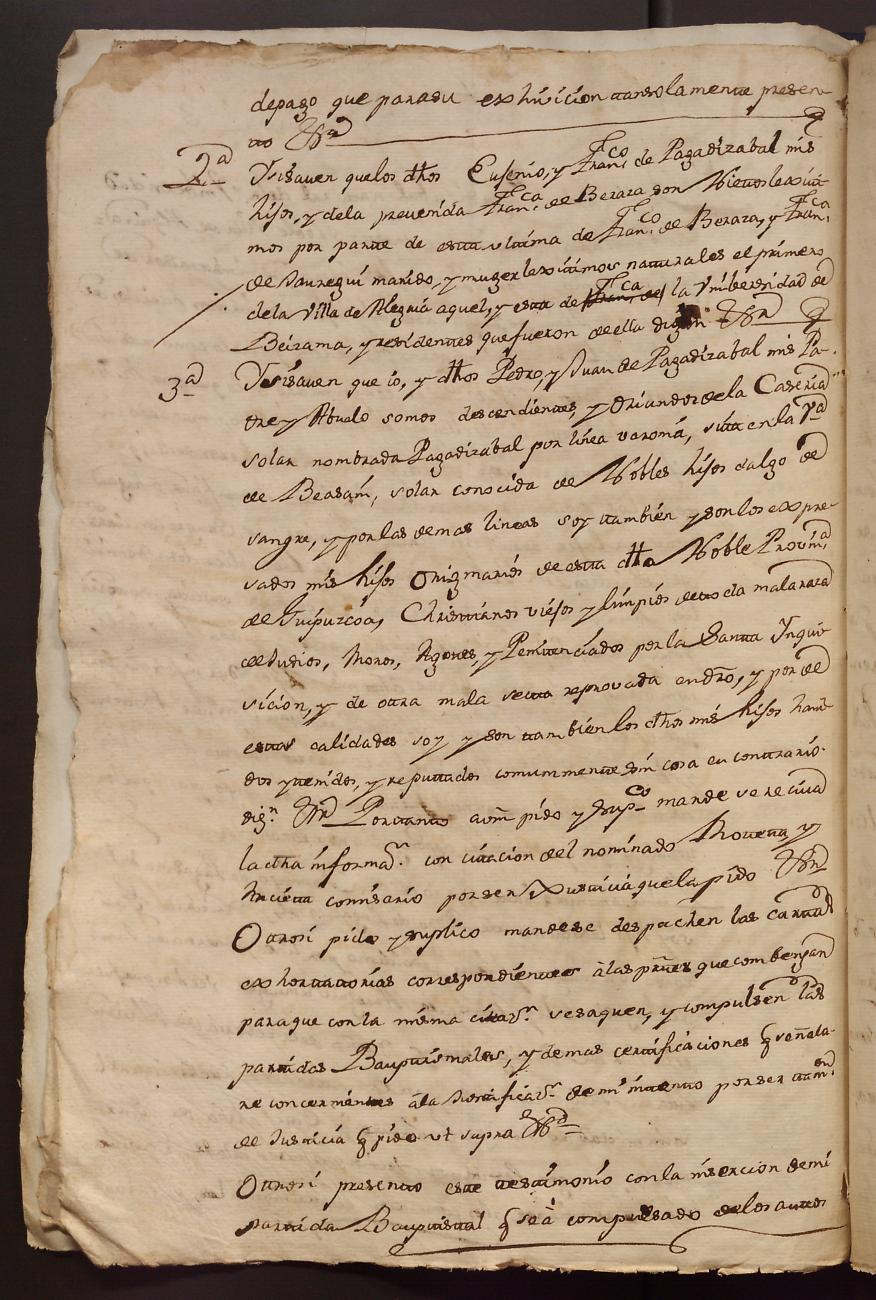 depago que parasu exhivicion tansolamente presen
to &ra
2.a Ysisaven quelos dhos Eusenio, y Fran.co de Pagadizabal mis
hijos, y dela prevenida Fran.ca de Beraza son Nietos lexiti
mos por parte de esta ultima de Fran.co de Beraza, y Fran.ca
de Jauregui marido, y muger lexitimos naturales el primero
dela Villa de Alegria aquel, y esta de la Vniversidad de
Beizama, y residentes que fueron de ella digan &ra
3.a Ysisaven que io, y dhos Pedro, y Juan de Pagadizabal mis Pa-
dre y Abuelo somos descendientes, y Oriundos de la Caseria
solar nombrada Pagadizabal por linea varonia, sita en la V.a
de Beasain, solar conocida de Nobles hijos dalgo de
sangre, y por las demas lineas soy tambien y son los expre
sados mis hijos Originarios de esta dha Noble Provin.a
de Guipuzcoa, Christianos viejos y limpios de toda mala raza
de Judios, Moros, Agotes, y Penitenciados por la Santa Ynqui
sicion, y de otra mala secta reprovada en dro, y por de
estas calidades soy y son tambien los dhos mis hijos havi
dos y tenidos, y reputados comunmente sin cosa en contrario.
dig.n &ra Portanto avm pido y sup.co mande se reciva
la dha informa.on con citacion del nominado Broueta, y
Ancieta comisario por ser Justicia que la pido &ra
Otrosi pido y suplico mandese despachen las cartas
exhortatorias correspondientes à las partes que combengan
para que con la misma citaz.n se saquen, y compulsen las
partidas Baptismales, y demas certificaciones q señala-
re concernientes à la Justificaz.n de mi intento por ser tam.en
de Justicia q pido ut supra &ra
Otrosi presento este testimonio con la insercion de mi
partida Bauptismal q se à compulsado de los autos